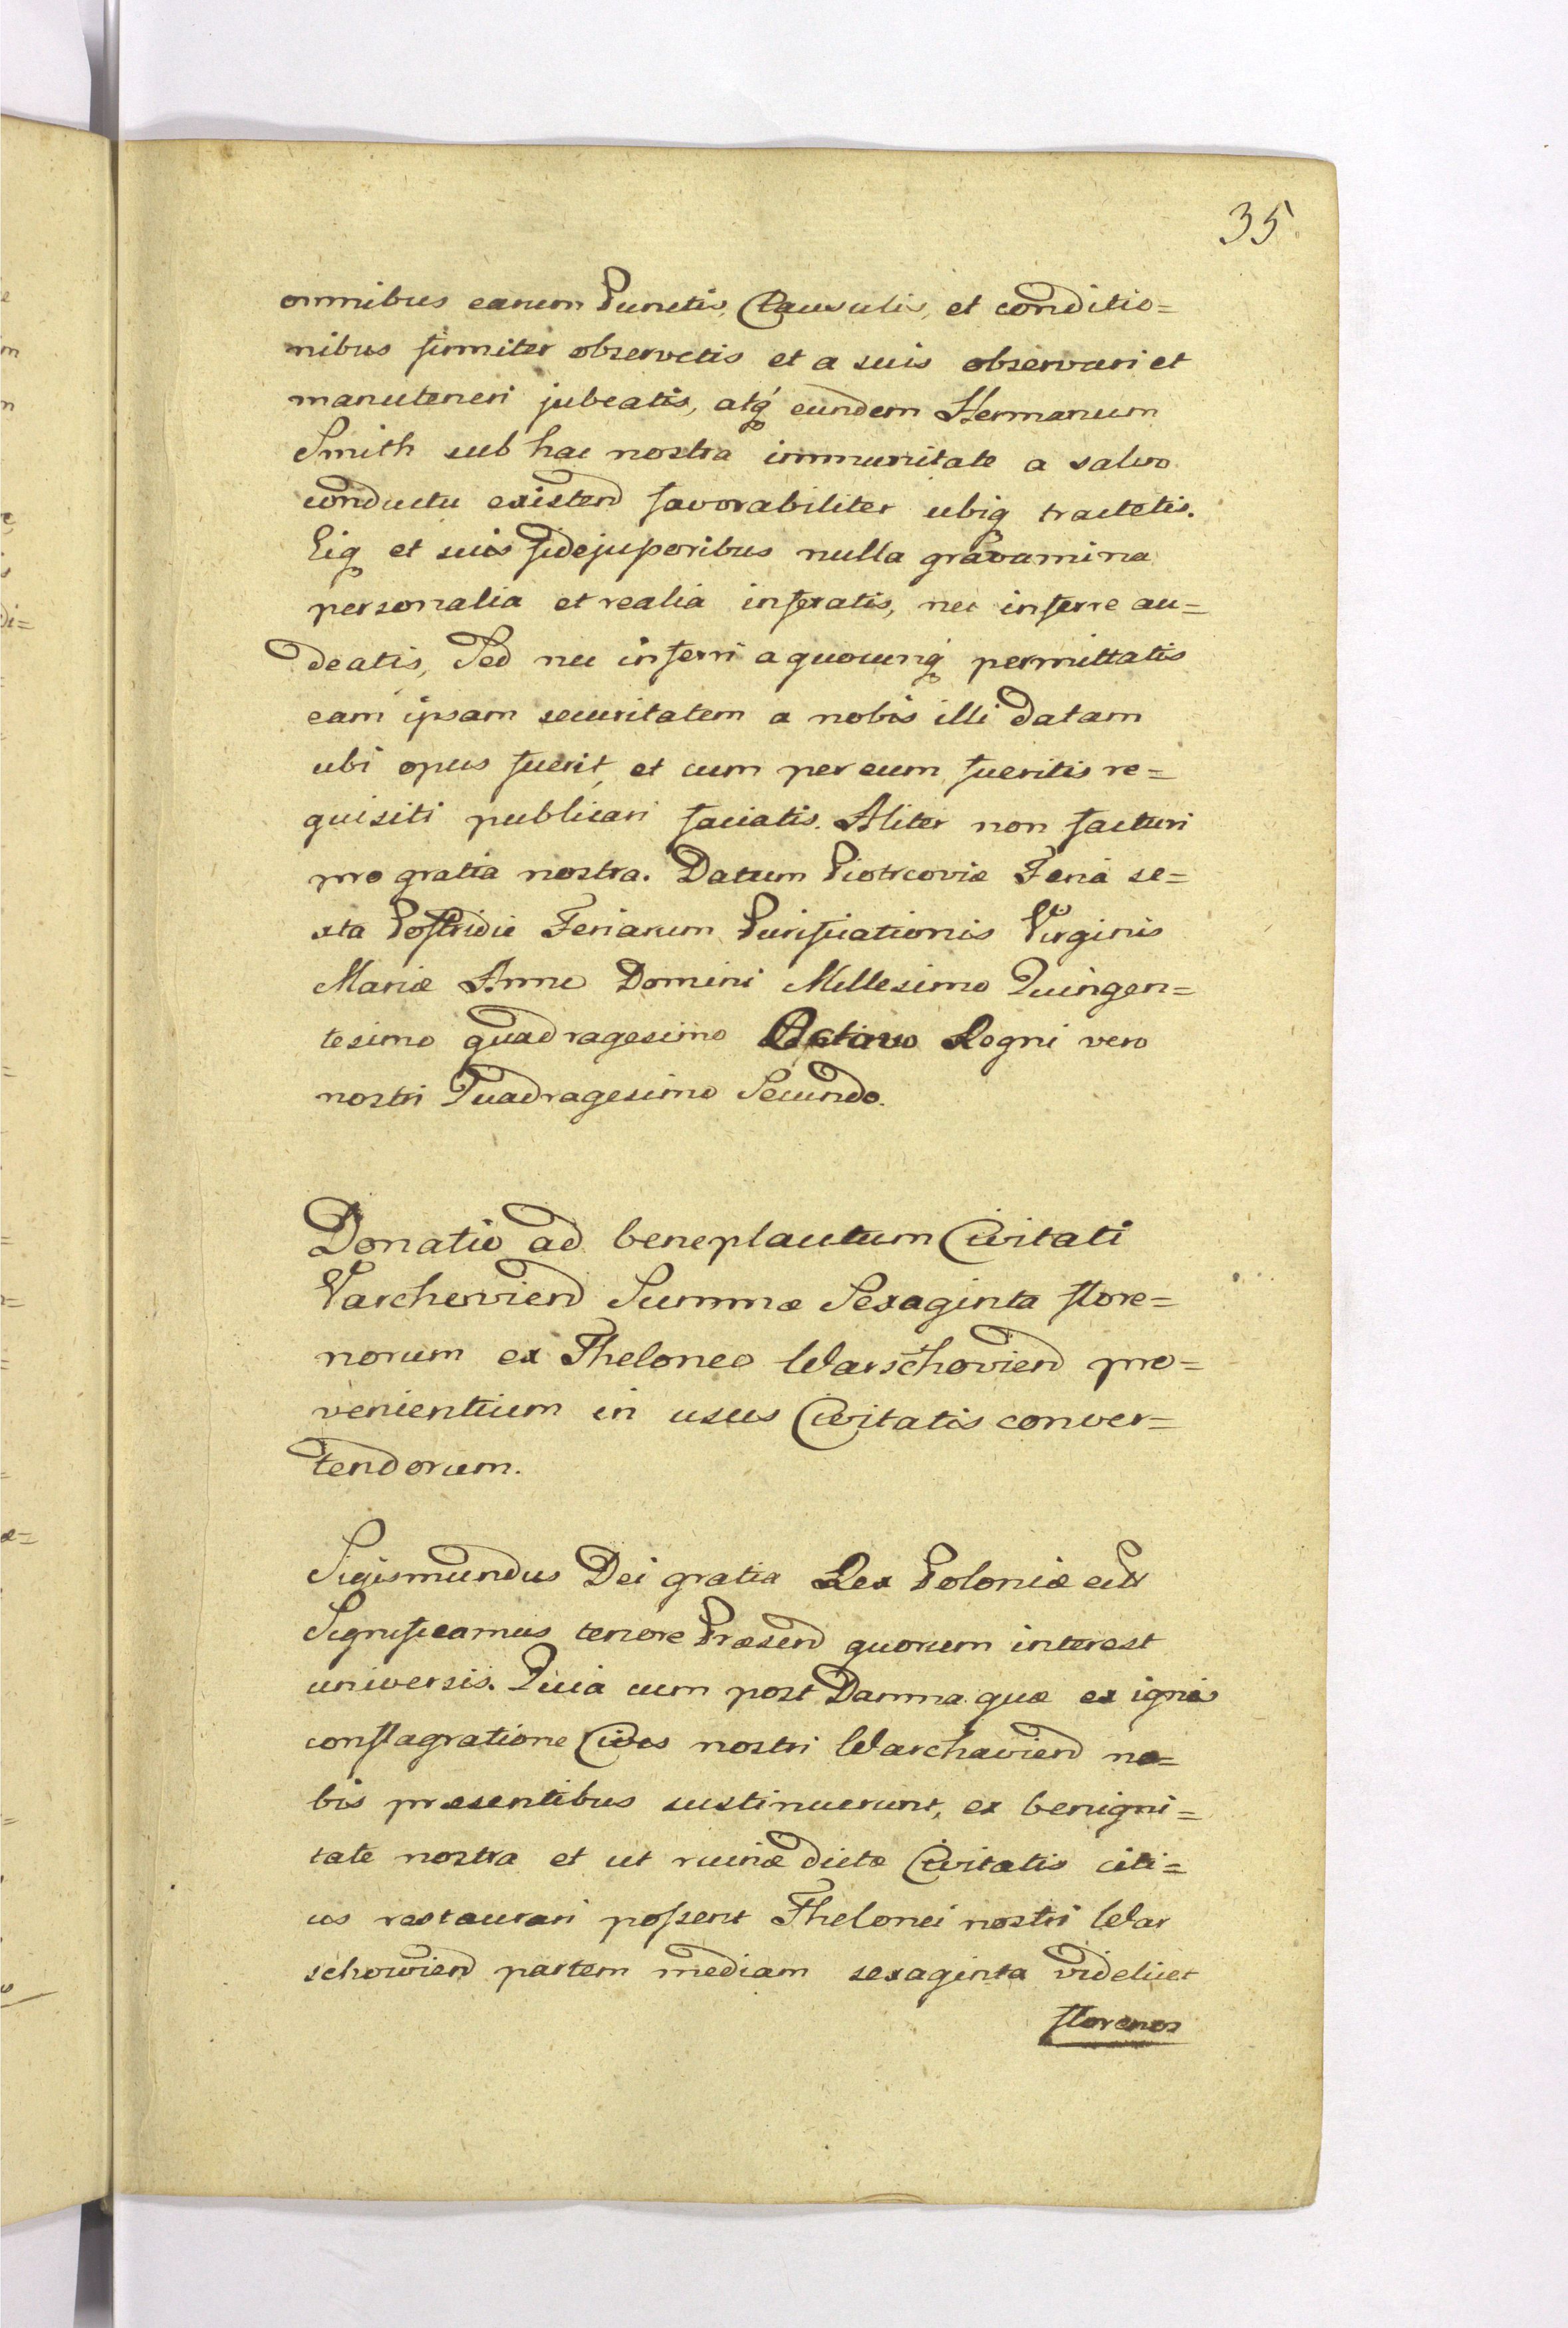 35.
omnibus earum Punctis, Clausulis, et conditio=
nibus firmiter observetis et a suis observari et
manuteneri jubeatis, atq́ eundem Hermanum
Smith sub hac nostra immunitate a salvo
conductu existend favorabiliter ubiq tractetis.
Eiq et suis fidejuſsoribus nulla gravamina
personalia et realia inferatis, nec inferre au=
deatis, Sed nec inferri a quocunq́ permittatis
eam ipsam securitatem a nobis illi datam
ubi opus fuerit, et cum per eum fueritis re=
quisiti publicari faciatis. Aliter non facturi
pro gratia nostra. Datum Piotrcoviæ Feria se=
xta Poſtridie Feriarum Purificationis Virginis
Mariæ Anno Domini Millesimo Quingen=
tesimo quadragesimo Octavo Regni vero
nostri Quadragesimo Secundo.
Donatio ad beneplacitum Civitati
Varchoviend Summæ Sexaginta flore=
norum ex Theloneo Warschoviend pro=
venientium in usus Civitatis conver=
tendorum.
Sigismundus Dei gratia Rex Poloniæ etc
Significamus tenore Præsend quorum interest
universis. Quia cum post Damna quæ ex ignis
conflagratione Cives nostri Warchaviend no=
bis præsentibus sustinuerunt, ex benigni=
tate nostra et ut ruinæ dictæ Civitatis citi=
us restaurari poſsent Thelonei nostri War
schowiend partem mediam sexaginta videlicet
florenos